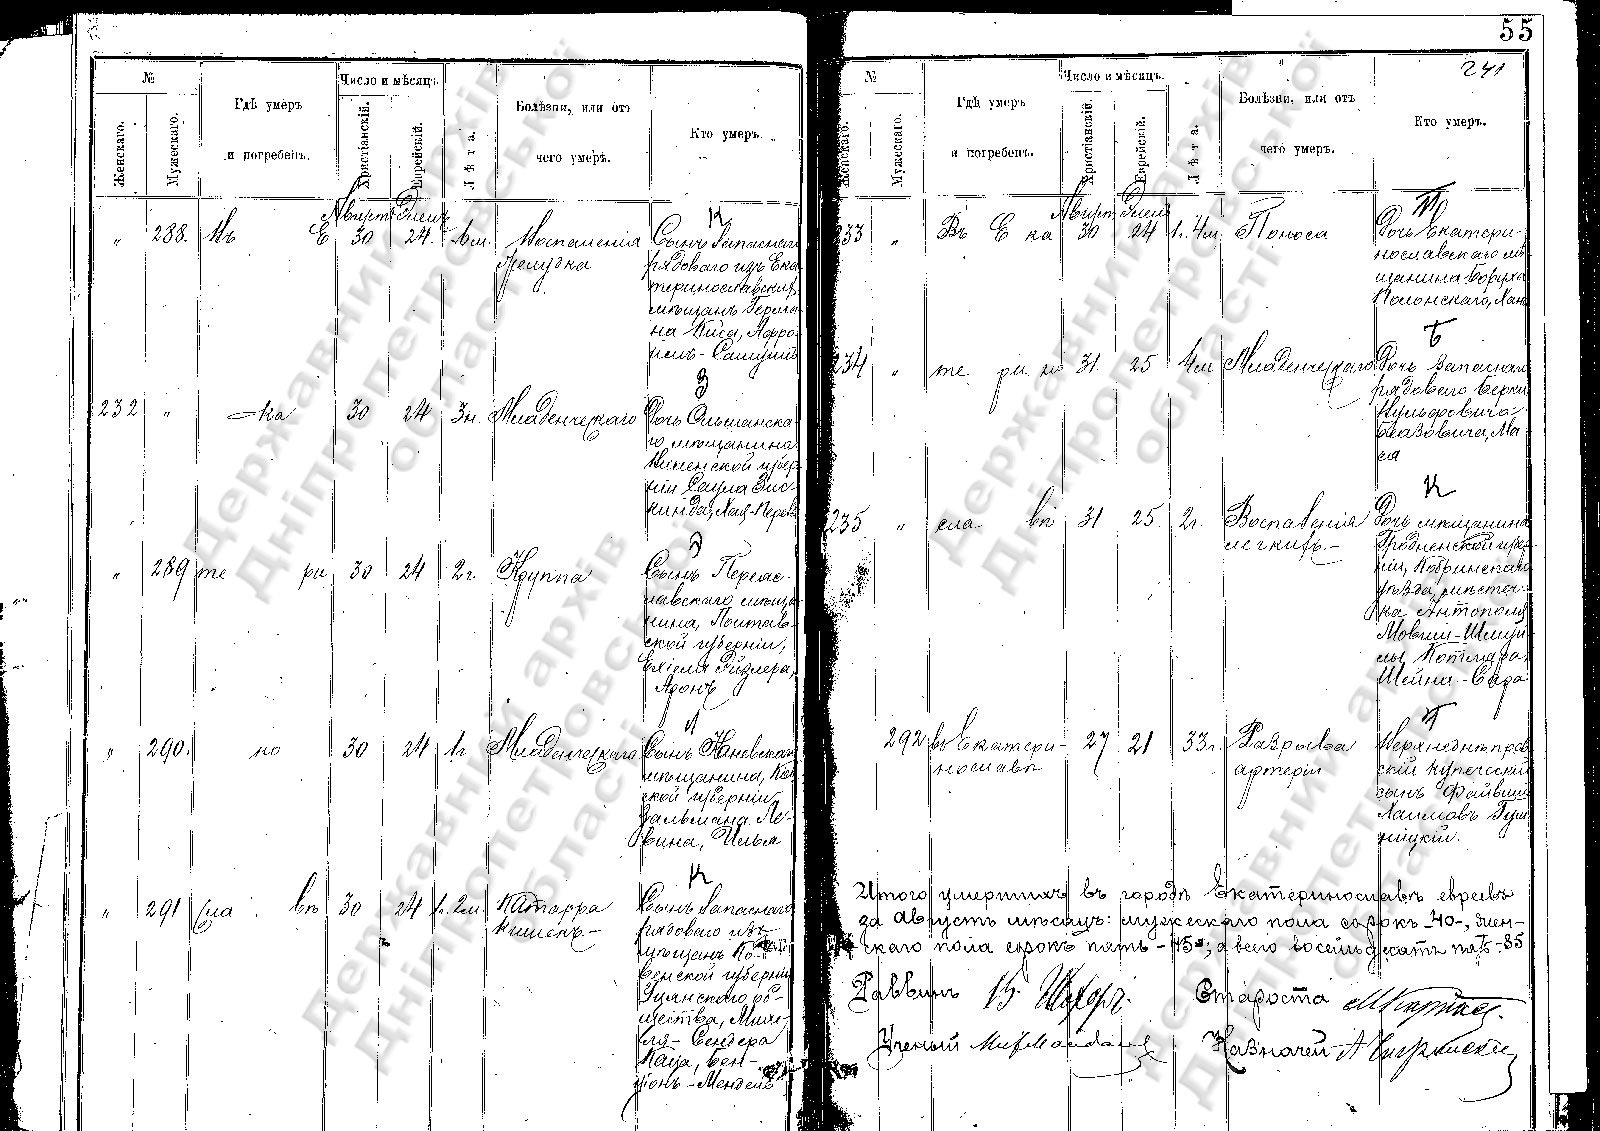 55
241
№
Женскаго.
Мужескаго.
Гдѣ умеръ
и погребенъ.
Число и мѣсяцъ
Христіанскій.
Еврейскій.
Лѣта.
Болѣзни, или отъ
чего умеръ.
Кто умеръ.
К
" 288. Въ Е Августъ 30 24. 6м. Воспаленія
желудка
Сынъ запаснаго
рядоваго изъ Ека-
теринославских
мѣщанъ Герма-
на Киса,
З
232 " -ка 30 24 3н. Младенческаго
Дочь Ольшанска-
го мѣщанина
Виленской губер-
ніи Саула Зис-
кинда, Хая-
" 289 те ри 30 24 2г. Круппа
Сынъ Переяс-
лавскаго мѣща-
нина, Полтав-
ской губерніи,
Ехіеля
Аронъ
Л
" 290. но 30 24 1г. Младенческаго
Сынъ Каневскаго
мѣщанина, Кіев-
ской губерніи
Зальмана Ле-
вина,
К
" 291 сла вѣ 30 24 1г. 2м. Катарра
кишекъ-
Сынъ запаснаго
рядоваго изъ
мѣщанъ Ко-
венской губерніи
об-
щества,
ля-Сендера
Каца, Бен-
ціонъ-Мендель
№
Женскаго.
Мужескаго.
Гдѣ умеръ
и погребенъ.
Число и мѣсяцъ.
Христіанскій.
Еврейскій.
Лѣта.
Болѣзни, или отъ
чего умеръ.
Кто умеръ.
П
233 " Въ Е ка Августъ 30 24 1г. 4м. Поноса
Дочь Екатери-
нославскаго мѣ-
щанина Боруха
Полонскаго, Хана
Б
234 " те ри но 31 25 4м Младенческаго
Дочь запаснаго
рядоваго Берки
Вульфовича
Маля
К
235 " сла вѣ 31 25 2г. Воспаленія
легкихъ.-
Дочь мѣщанина
Гродненской губер-
ніи, Кобринскаго
уѣзда, мѣстеч-
ка Антополя
Мовши-Шмуй-
лы Котляра,
Шейна-Сара
292 въ Екатери-
нославѣ
27 21 33г. Разрыва
артеріи
Верхнеднѣпров-
скій купеческій
сынъ Файвиш
Хаимовъ
Итого умершихъ въ городѣ Екатеринославѣ евреевъ
за Августъ мѣсяцъ: мужескаго пола сорокъ-40-, жен-
скаго пола сорокъ пять-45-; а всего восемьдесятъ пять-85
Раввинъ Староста
Ученый Казначей